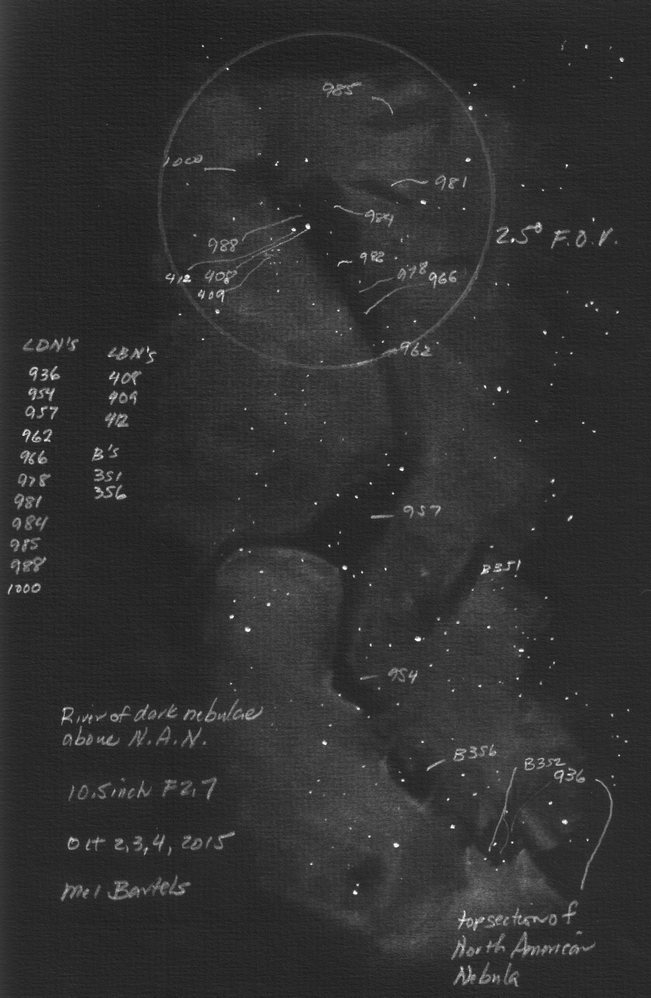 985
1000
981
984
2.5° F.O.V.
988
988
412 408
978
966
409
962
LDN's
936
954
957
962
966
978
981
984
985
988
1000
LBN's
408
409
412
B's
351
356
957
B351
954
River of dark nebulae
above N.A.N.
B356
B352
936
10.5 inch F2.7
Oct 2,3,4, 2015
Mel Bartels
top section of
North American
Nebula